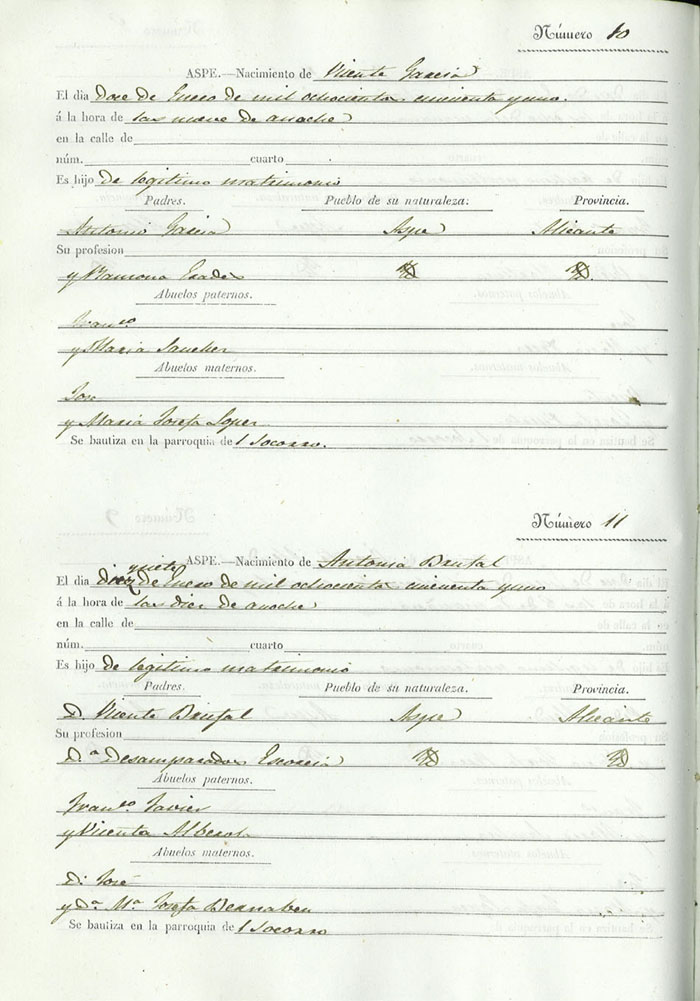 Número 10
ASPE.—Nacimiento de Vicente Garcia
El dia doce de Enero de mil ochocientos cincuenta y uno.
á la hora de las nueve de anoche
en la calle de
núm. cuarto
Es hijo de legitimo matrimonio
Padres. Pueblo de su naturaleza: Provincia.
Antonio Garcia Aspe Alicante
Su profesion
y Ramona
Abuelos paternos.
Franco
y Maria Sanchez
Abuelos maternos.
José
y Maria Josefa Lopez
Se bautiza en la parroquia del Socorro.
Número 11
ASPE.—Nacimiento de Antonia Brufal
El dia diez y siete de Enero de mil ochocientos cincuenta y uno
á la hora de las diez de anoche
en la calle de
núm. cuarto
Es hijo de legitimo matrimonio
Padres. Pueblo de su naturaleza. Provincia.
D. Vicente Brufal Aspe Alicante
Su profesion
D.ª Desamparados Escorcia
Abuelos paternos.
Franco Javier
y Vicenta Alberola
Abuelos maternos.
D. José
y D.ª Mª Josefa Bernabeu
Se bautiza en la parroquia del Socorro